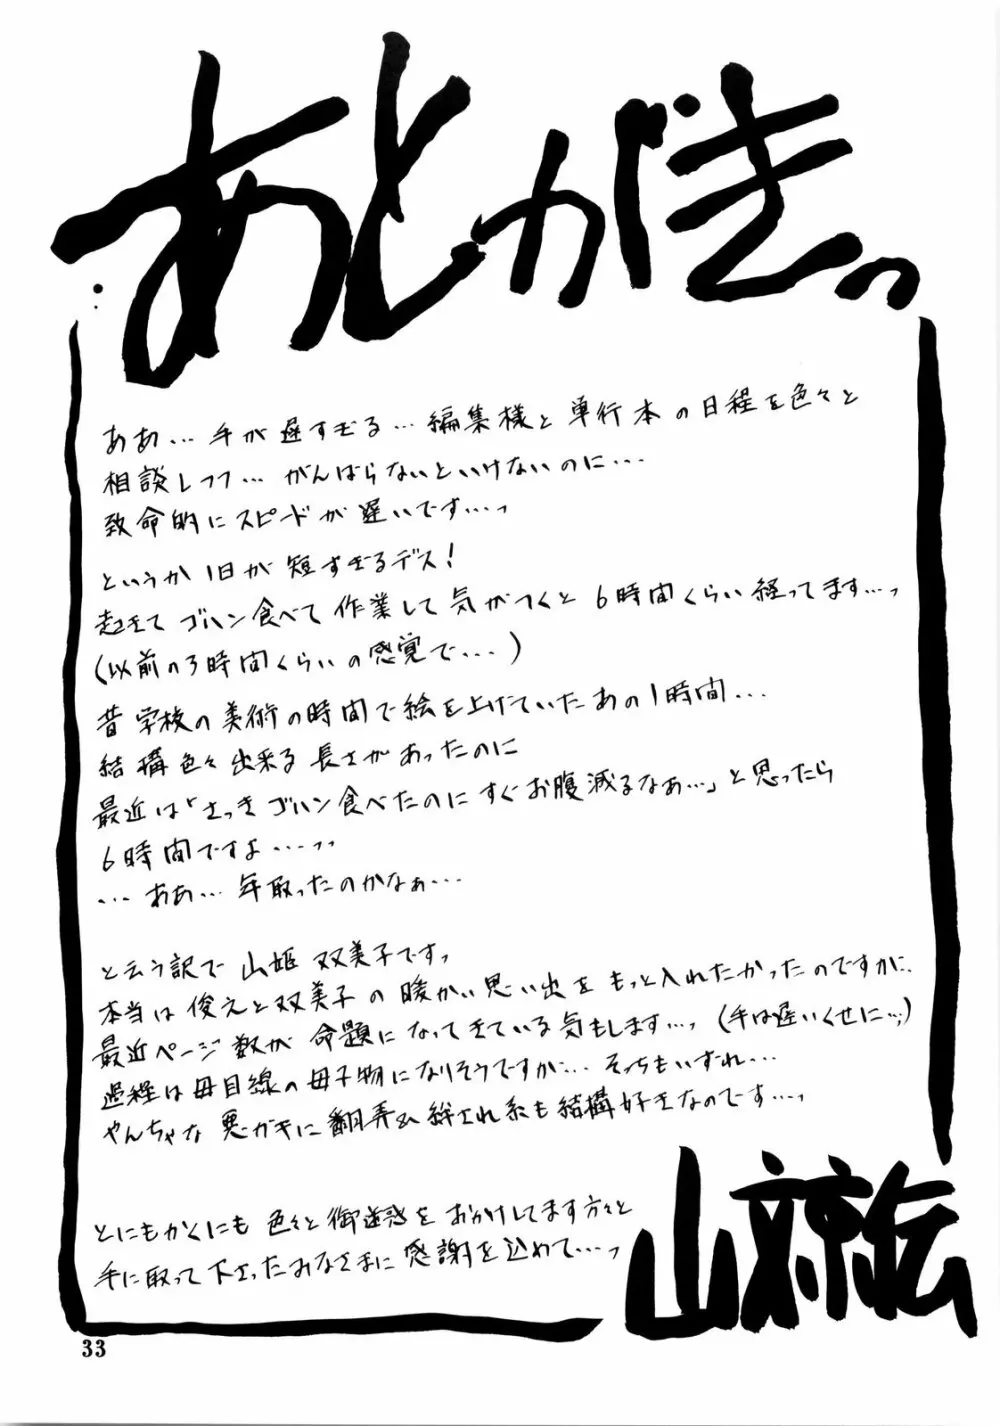 あとがきっ
ああ...手が遅すぎる...編集様と単行本の日程を色々と
相談しつつ...がんばらないといけないのに...
致命的にスピードが遅いです...っ
というか1日が短すぎるデス!
起きてゴハン食べて作業して気がつくと6時間くらい経ってます...っ
(以前の3時間くらいの感覚で...)
昔学校の美術の時間で絵を上げていたあの1時間...
結構色々出来る長さがあったのに
最近は「さっきゴハン食べたのにすぐお腹減るなぁ...」と思ったら
6時間ですよ...っっ
...ああ...年取ったのかなぁ...
と云う訳で山姫双美子ですっ
本当は俊之と双美子の暖かい思い出をもっと入れたかったのですが、
最近ページ数が命題になってきている気もします...っ(手は遅いくせに...っ)
過程は母目線の母子物になりそうですが...そっちもいずれ...
やんちゃな悪ガキに翻弄&絆され系も結構好きなのです...っ
とにもかくにも色々と御迷惑をおかけしてます方々と
手に取って下さったみなさまに感謝を込めて...っ
山文京伝
33